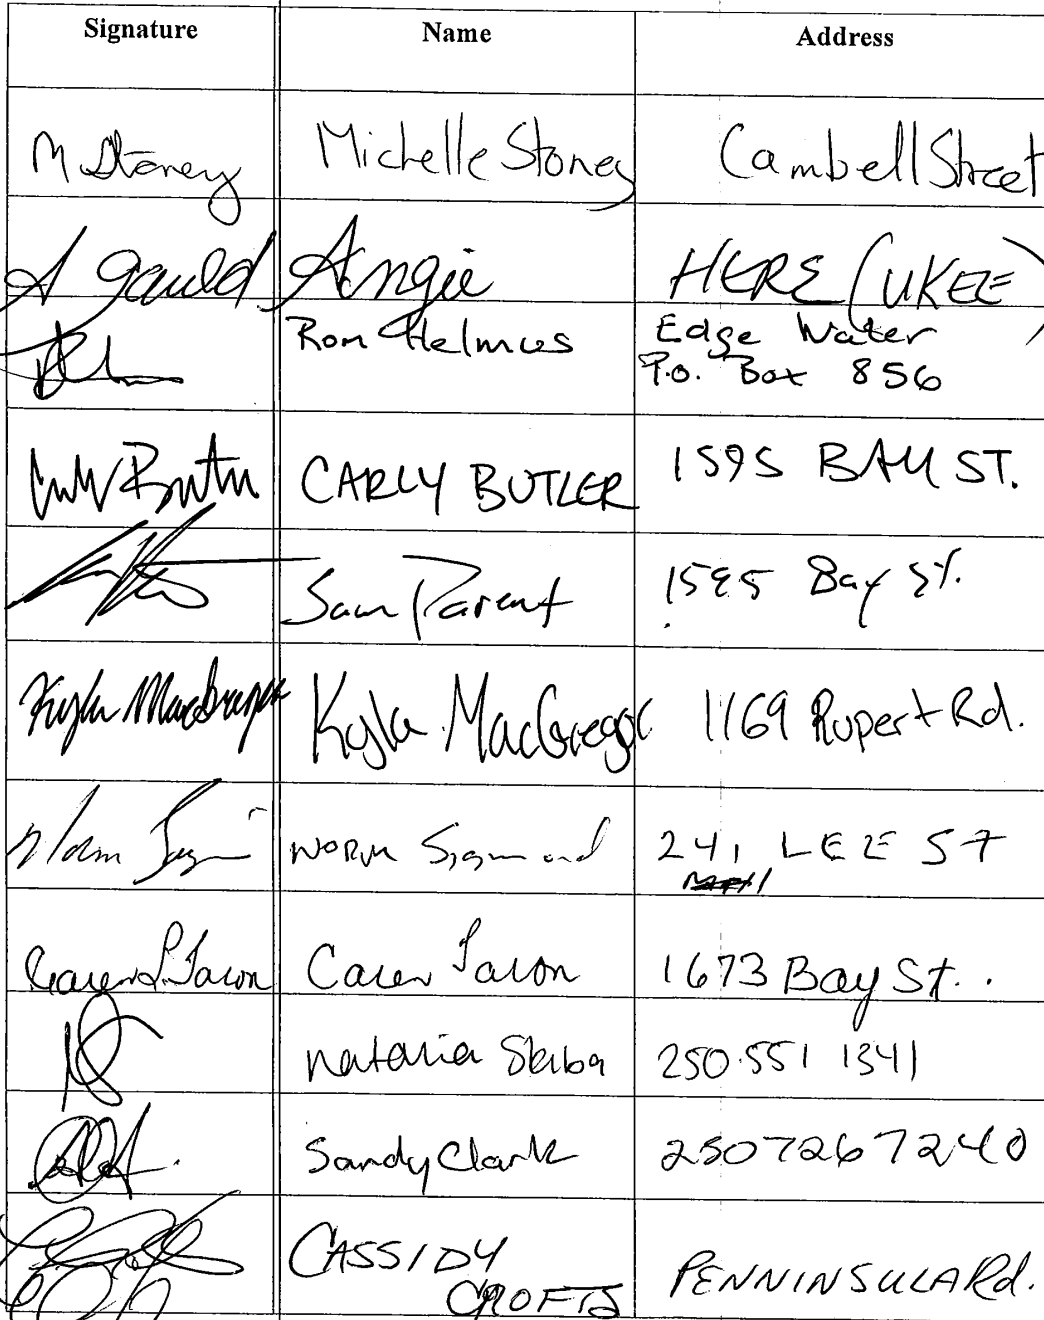 Signature Name Address
M Stoney Michelle Stoney Cambell Street
A Gauld Angie HERE (UKEE)
Ron Helmus Edge Water
P.O. Box 856
CARLY BUTLER 1595 BAY ST.
Sam Parent 1595 Bay St.
Kyla MacGregor Kyla MacGregor 1169 Rupert Rd.
Norm NORM Sigmond 241 LEE ST
Caren Caren 1673 Bay St.
Natania Skiba 250.551 1341
Sandy Clark 250 726 7240
CASSIDY
CROFTS PENNINSULA Rd.